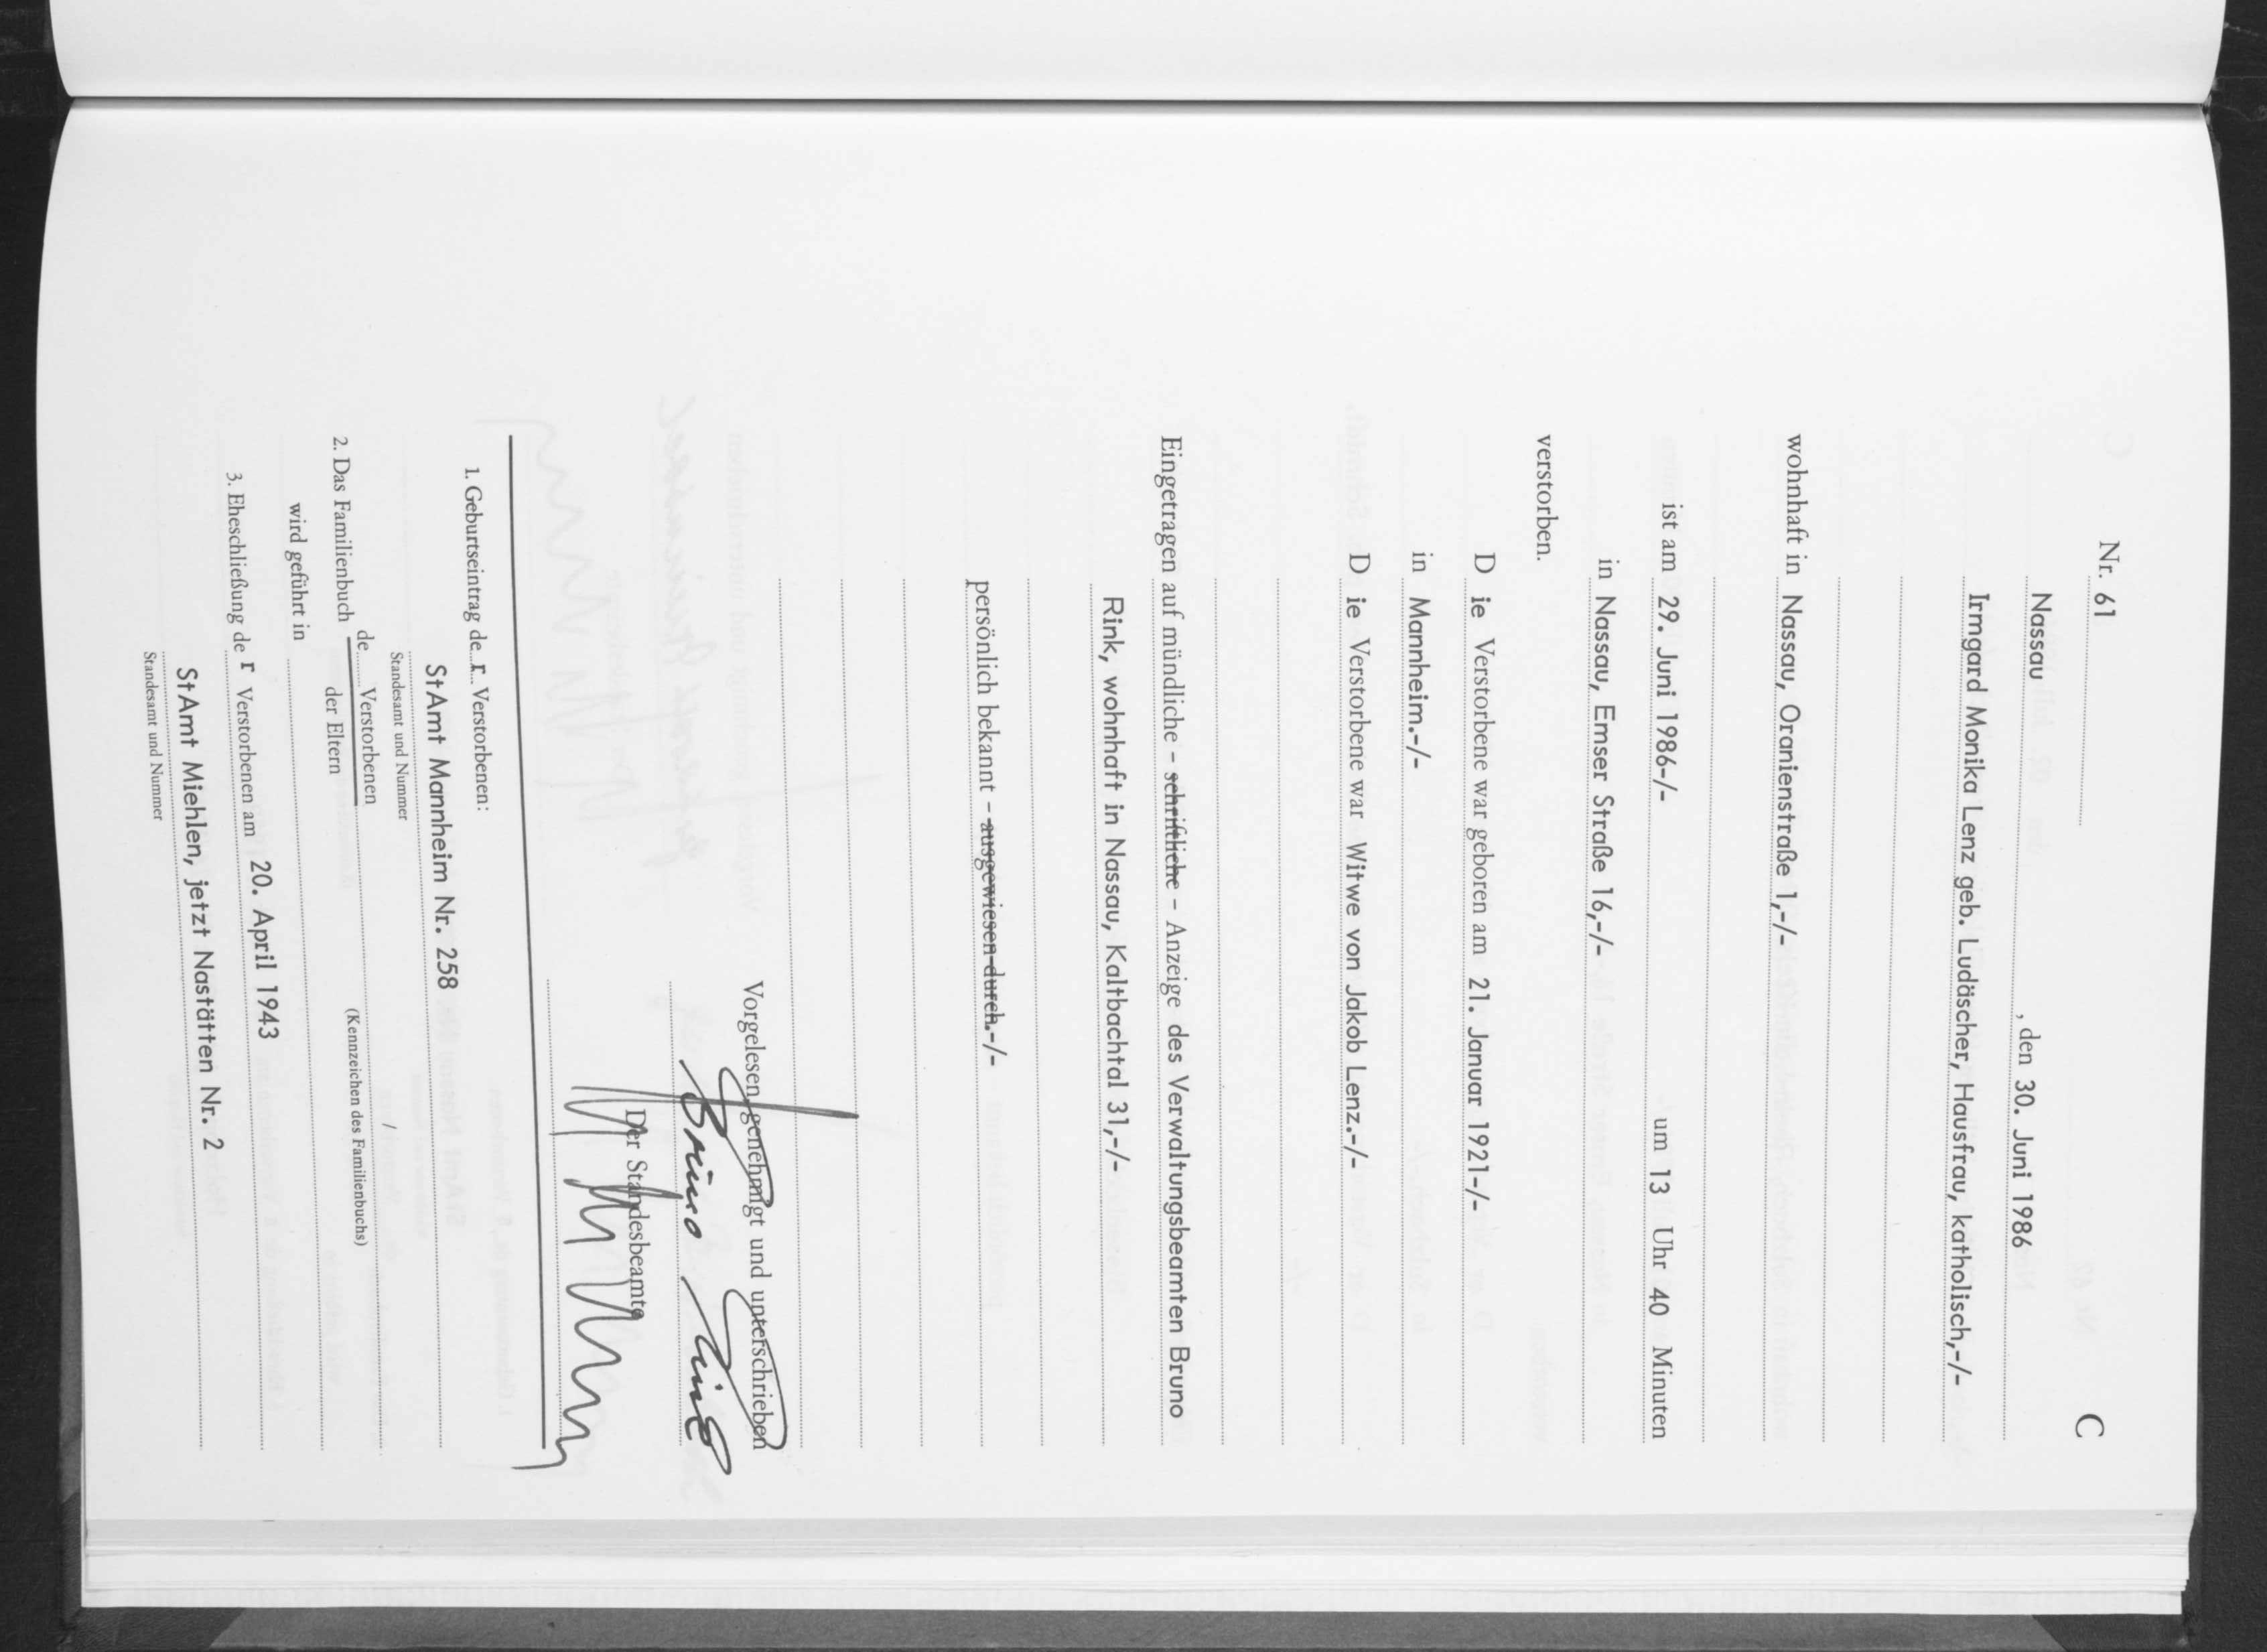 C
Nr. 61
Nassau , den 30. Juni 1986
Irmgard Monika Lenz geb. Ludäscher, Hausfrau, katholisch,-/-
wohnhaft in Nassau, Oranienstraße 1,-/-
ist am 29. Juni 1986-/- um 13 Uhr 40 Minuten
in Nassau, Emser Straße 16,-/-
verstorben.
D ie Verstorbene war geboren am 21. Januar 1921-/-
in Mannheim.-/-
D ie Verstorbene war Witwe von Jakob Lenz.-/-
Eingetragen auf mündliche - schriftliche - Anzeige des Verwaltungsbeamten Bruno
Rink, wohnhaft in Nassau, Kaltbachtal 31,-/-
persönlich bekannt - ausgewiesen durch.-/-
Vorgelesen, genehmigt und unterschrieben
Bruno Rink
Der Standesbeamte
1. Geburtseintrag de r Verstorbenen:
StAmt Mannheim Nr. 258
Standesamt und Nummer
2. Das Familienbuch de Verstorbenen /
der Eltern (Kennzeichen des Familienbuchs)
wird geführt in
3. Eheschließung de r Verstorbenen am 20. April 1943
StAmt Miehlen, jetzt Nastätten Nr. 2
Standesamt und Nummer